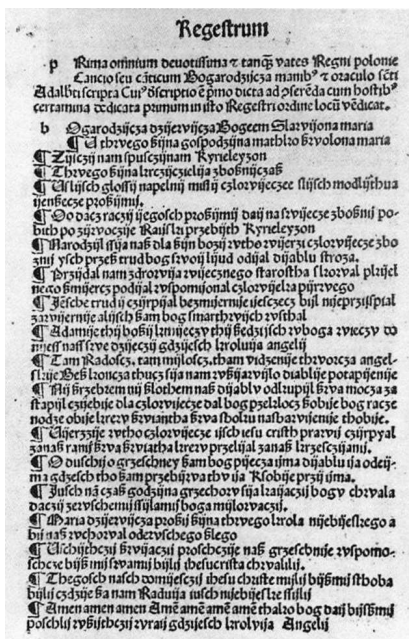 Regestrum
pRima omnium devotissima & tanq̃ vates Regni polonie
Cancio seu cãticum Bogarodzijcza manib9 & oraculo sc̃ti
Adalb̃ti scripta Cui9 dscriptio e pmo dicta ad pserẽda cum hostib9
certamina dedicata primum in isto Regestri ordine locũ vẽdicat.
bOgarodzijcza dzijervijcza Bogeem Slarvijona maria
¶ U thrvego ßijna gospodzijna mathko ßrvolona maria
¶ Zijsczij nam spusczijnam Kyrieleyzon
¶ Thrvego ßijna krczijczijelija zboßnijczaß
¶ Uslijsch glossij napelnij mislij czlorvijeczee slijsch modlijthua
ijenßecze proßijmij.
¶ Oo dacz raczij ijegosch proßijmij daij na srvijecze zboßnij po-
bith po zijrvoczije Raijski przebijth Kyrieleyzon
¶ Narodzijl ssija naß dla ßijn bozij rvtho rvijerzi czlorvijecze zbo
znij ysch przeß trud bog srvoij lijud odijal dijablu stroza.
¶ Przijdal nam zdrorvija rvijecznego starostha skorval pkijel
nego ßmijercz podijal rvspomijonal czlorvijeka pijrvego
¶ Jesche trud ij czijrpijal bezmijernije ijesczecz bijl nieprzijspial
zarvijernije alijsch ßam bog smarthrvijch rvsthal
¶ Adamije thij boßij kmijeczy thij ßedzi isch rvboga rvieczy do
mjess naß srve dzijeczij gdzijesch krolvija angelij
¶ Tam Radoscz, tam mijloscz, tham vidzenije thrvorcza angel-
skije Beß koncza thucz sija nam rvßijarvijlo diablije potapijenije
¶ Nij srzebrem nij slothem naß dijablv odkupijl ßrva mocza za
stapijl czijebije dla czlorvijecze dal bog przeklocz ßobije bog racze
nodze obije krery ßrviantha ßrva sboku nasbarvijenije thobije.
¶ Uijerzzije rvtho czlorvijecze ijsch iesu cristh pravij czijrpyal
zanaß ranij ßrva ßrviatha krery przelijal zanaß krzesczijanij.
¶ O duschij o grzeschney ßam bog pijecza ijma dijablu ija odeij-
ma gdzesch tho ßam przebijrva thv ija Ksobije przij ijma.
¶ Jusch nã czaß godzijna grzechorv sija kaijaczij bogv chrvala
daczij zervschemijssijlamij boga mijlorvaczij.
¶ Maria dzijervijcza prosij ßijna thrvego krola nijebijeskego a
bij naß rvchorval odervschego slego
¶ Uschijthczij ßrvijaczij proschczije naß grzeschnije rvspomo-
scheze bijß mij srvamij bijlij ihesucrista chrvalilij.
¶ Thegosch nasch domijesczij ihesu christe mislij bijßmij sthoba
bijlij czdzije ßa nam Radvija iusch nijebijeske ssijlij
¶ Amen amen amen Amẽ amẽ amẽ amẽ thako bog daij bijssmij
poschlij rvßijthczij rvraij gdzijesch krolvija Angelij